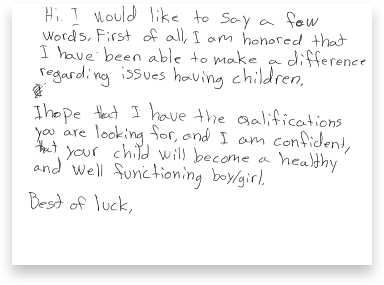 Hi. I would like to say a few
words. First of all, I am honored that
I have been able to make a difference
regarding issues having children.
I hope that I have the qalifications
you are looking for, and I am confident,
that your child will become a healthy
and well functioning boy/girl.
Best of luck,